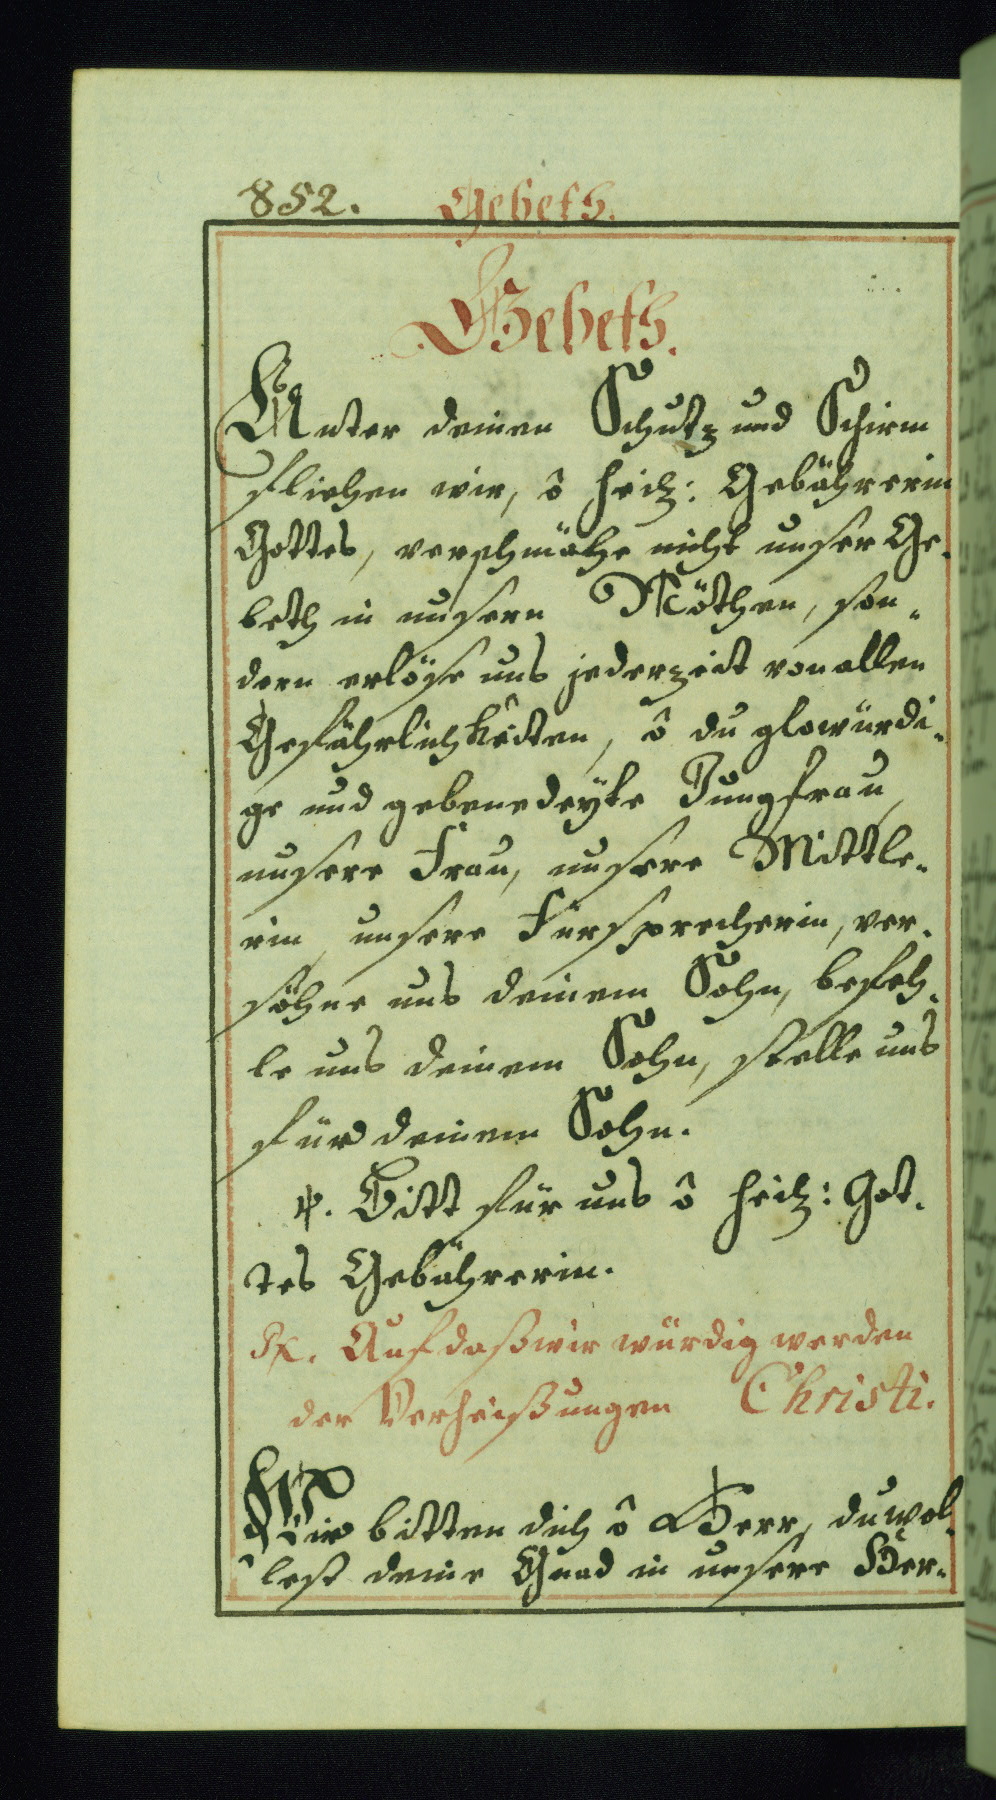 852. Gebeth.
Gebeth.
Unter deinen Schutz und Schirm
fliehen wir, ô heil: Gebährerin
Gottes, verschmähe nicht unser Ge-
beth in unsern Nöthen, son-
dern erlöse uns jederzeit von allen
Gefährlichkeiten, ô du glowürdi-
ge und gebenedeyte Jungfrau,
unsere Frau, unsere Mittle-
rin, unsere Fürsprecherin, ver-
söhne uns deinem Sohn, befeh-
le uns deinem Sohn, stelle uns
für deinem Sohn.
℣. Bitt für uns ô heil: Got-
tes Gebährerin.
℟. Auf daß wir würdig werden
der Verheißungen Christi.
Wir bitten dich ô Herr, du wol-
lest deine Gnad in unsere Her-